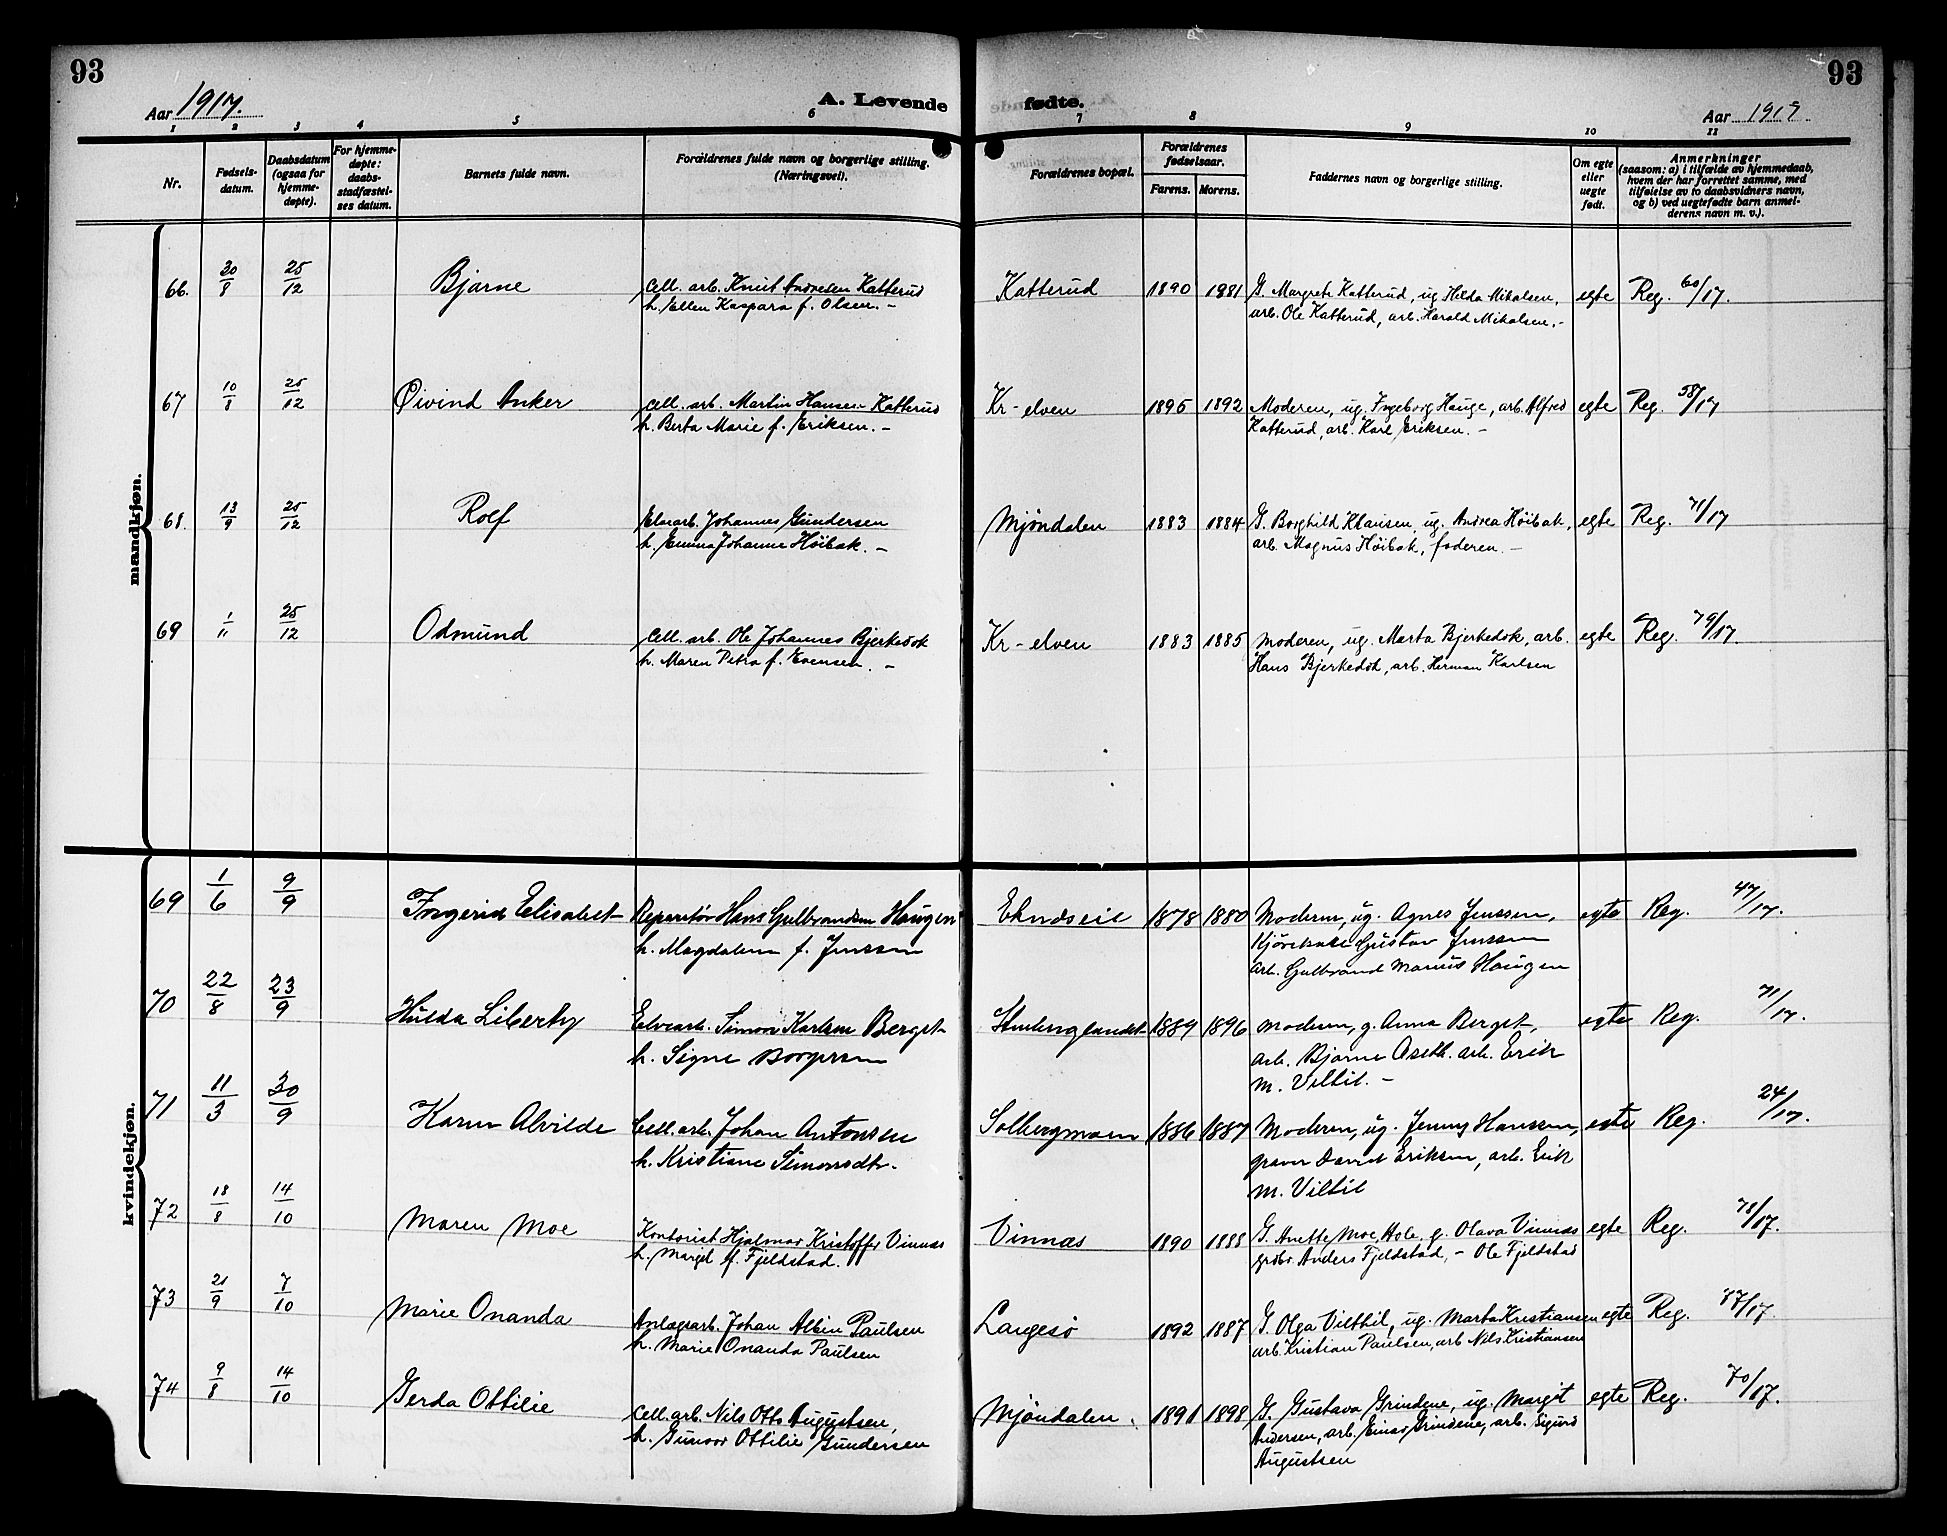 93
93
Aar 1917.
A. Levende
fødte.
Aar 1917.
1 2 3 4 5 6 7 8 9 10 11
Nr.
Fødsels-
datum.
Daabsdatum
(ogsaa for
hjemme-
døpte).
For hjemme-
døpte:
daabs-
stadfæstel-
ses datum.
Barnets fulde navn.
Forældrenes fulde navn og borgerlige stilling.
(Næringsvei).
Forældrenes bopæl.
Forældrenes
fødselsaar.
Farens. Morens.
Faddernes navn og borgerlige stilling.
Om egte
eller
uegte
født.
Anmerkninger
(saasom: a) i tilfælde av hjemmedaab,
hvem der har forrettet samme, med
tilføielse av to daabsvidners navn,
og b) ved uegtefødte barn anmel-
derens navn m. v.).
mandkjøn.
66. 20/8 25/12 Bjarne Cell. arb. Knut Andresen Katterud Katterud 1890 1881 G. Margrete Katterud, ug Hilda Mikalsen, egte Reg. 60/17.
h. Ellen Kaspara f. Olsen. - arb. Ole Katterud, arb. Harald Mikalsen. -
67 10/8 25/12 Øivind Anker Cell. arb. Martin Hansen Katterud Kr-elven 1895 1892 Moderen, ug. Ingeborg Hauge, arb. Alfred egte Reg. 58/17
h. Berta Marie f. Eriksen. - Katterud, arb. Karl Eriksen. -
68. 13/9 25/12 Rolf Elvearb. Johannes Gundersen Mjøndalen 1883 1884 G. Borghild Klausen, ug. Andrea Høibak, egte Reg. 71/17
h. Emma Johanne Høibak. - arb. Magnus Høibak, faderen. -
69 1/11 25/12 Odmund Cell. arb. Ole Johannes Bjerkedok Kr-elven 1883 1885 Moderen, ug. Marta Bjerkedok, arb. egte Reg. 79/17.
h. Maren Petra f. Evensen. - Hans Bjerkedok, arb. Herman Karlsen
kvindekjøn.
69 1/6 9/9 Ingerid Elisabet Reparatør Hans Gulbrandsen Haugen Eknæseie 1878 1880 Moderen, ug. Agnes Jenssen, egte Reg. 47/17.
h. Magdalena f. Jenssen Gustav Jenssen
arb. Gulbrand Marius Haugen
70 22/8 23/9 Hulda Liberty Elvearb. Simon Karlsen Berget Stenberglandet 1889 1896 Moderen, g. Anna Berget, egte Reg. 71/17.
h. Signe Borgersen arb. Bjarne Aseth. arb. Erik
M. Vilbil. -
71 11/3 30/9 Karen Alvilde Cell. arb. Johan Antonsen Solbergmoen 1886 1887 Moderen, ug. Jenny Hanssen, egte Reg. 24/17.
h. Kristiane Simonsdtr. graver David Eriksen, arb. Erik
M. Vilbil
72 18/8 14/10 Maren Moe Kontorist Hjalmar Kristoffer Vinnæs Vinnæs 1890 1888 G. Anette Moe, Hole. g. Olava Vinnæs egte Reg. 78/17.
h. Margit f. Fjeldstad. grdbr. Anders Fjeldstad, - Ole Fjeldstad
73 21/9 7/10 Marie Onanda Anlægsarb. Johan Albin Paulsen Langesø 1892 1887 G. Olga Vilbbil, ug. Marta Kristiansen egte Reg. 77/17.
h. Marie Onanda Paulsen arb. Kristian Paulsen, arb Nils Kristiansen
74 9/8 14/10 Gerda Ottilie Cell. arb. Nils Otto Augustsen, Mjøndalen. 1891 1898 G. Gustava Grindene, ug. Margit egte Reg. 70/17.
h. Gunvor Ottilie Gundersen Andersen, arb. Einar Grindene, arb. Sigurd
Augustsen